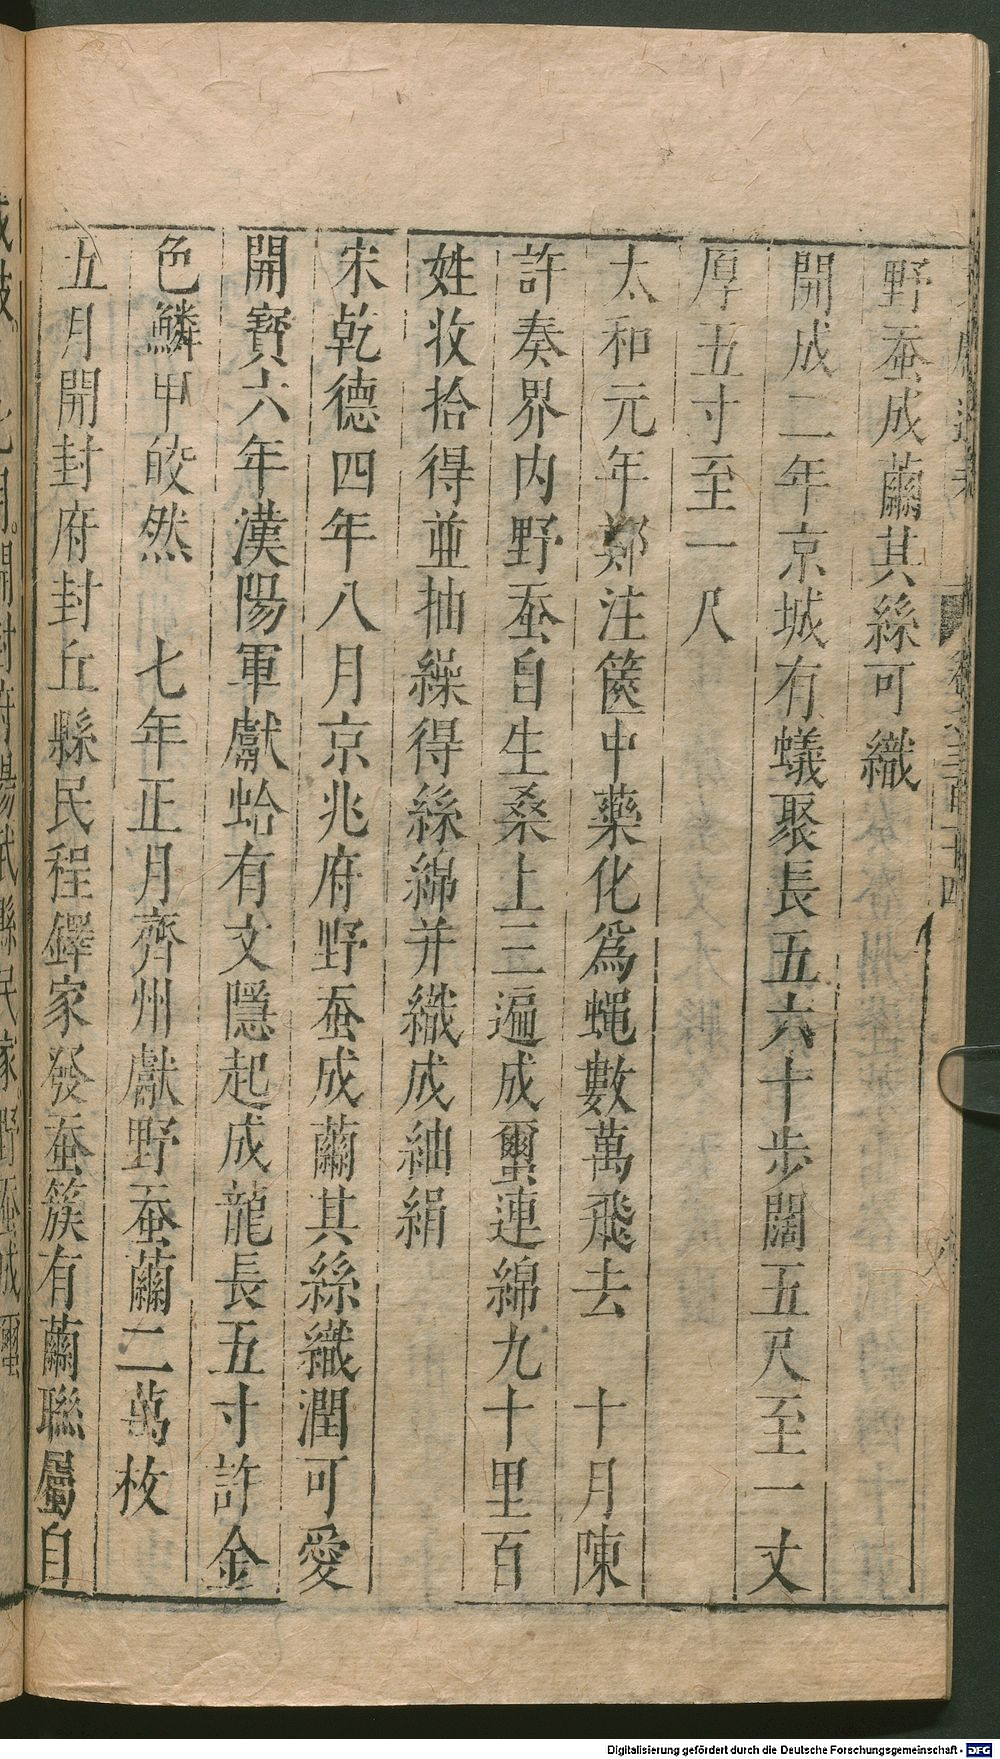 野蚕成繭其絲可織
開成二年京城有蟻聚長五六十步闊五尺至一丈
厚五寸至一尺
太和元年鄭注篋中藥化爲蠅數萬飛去　十月陳
許奏界内野蚕自生桑上三遍成璽連綿九十里百
姓收拾得並抽繰得絲綿并織成紬絹
宋乾德四年八月京兆府野蚕成繭其絲織潤可愛
開寶六年漢陽軍獻蛤有文隱起成龍長五寸許金
色鱗甲皎然　七年正月齊州獻野蚕繭二萬枚
五月開封府封丘縣民程鐸家發蚕簇有繭聯屬自
Digitalisierung gefördert durch die Deutsche Forschungsgemeinschaft - DFG